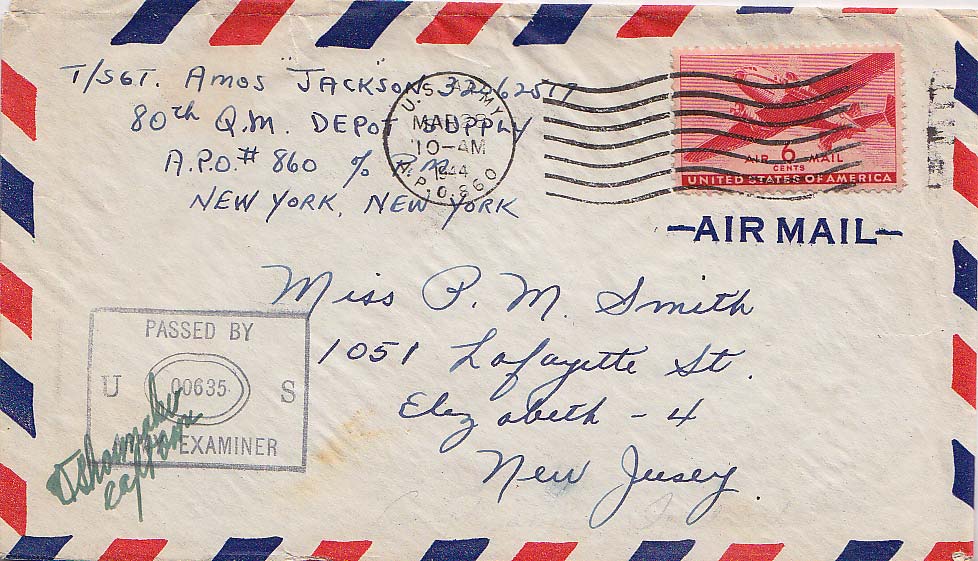 T/SGT. AMOS "JACKSON" 32262517
80th Q.M. DEPOT SUPPLY
A.P.O. # 860 % P.M.
NEW YORK, NEW YORK
U.S. ARMY
MAR 28
10-AM
1944
A.P.O. 860
AIR 6 MAIL
CENTS
UNITED STATES OF AMERICA
-AIR MAIL-
Miss P. M. Smith
1051 Lafayette St.
Elizabeth - 4
New Jersey
PASSED BY
U 00635 S
EXAMINER
Captain